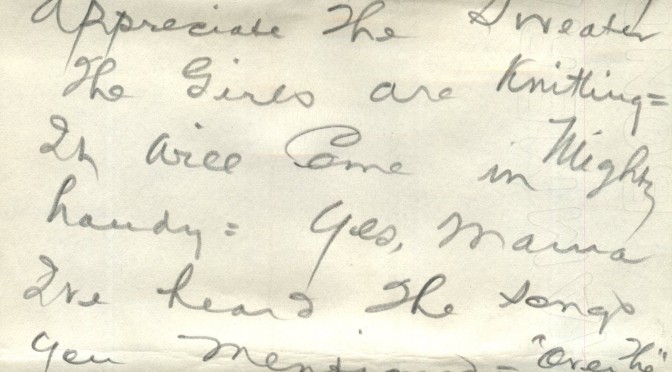 Appreciate The Sweater
The Girls are Knitting=
It will Come in Mighty
handy= Yes, Mama
I've heard The songs
you mentioned- "Over The"